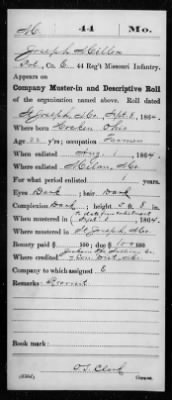 M. 44 Mo.
Joseph Miller
Pvt., Co. E, 44 Reg't Missouri Infantry.
Appears on
Company Muster-in and Descriptive Roll
of the organization named above. Roll dated
St Joseph Mo Sept 8, 1864.
Where born Ohio
Age 22 y'rs; occupation Farmer
When enlisted Aug 1, 1864.
Where enlisted Milan, Mo
For what period enlisted 1 years.
Eyes Dark; hair Dark
Complexion Dark; height 5 ft. 8 in.
When mustered in Sept 8, 1864.
Where mustered in St Joseph Mo
Bounty paid $ 100; due $ 100
Where credited
Company to which assigned E
Remarks:
Book mark:
O.T. Clark
Copyist.